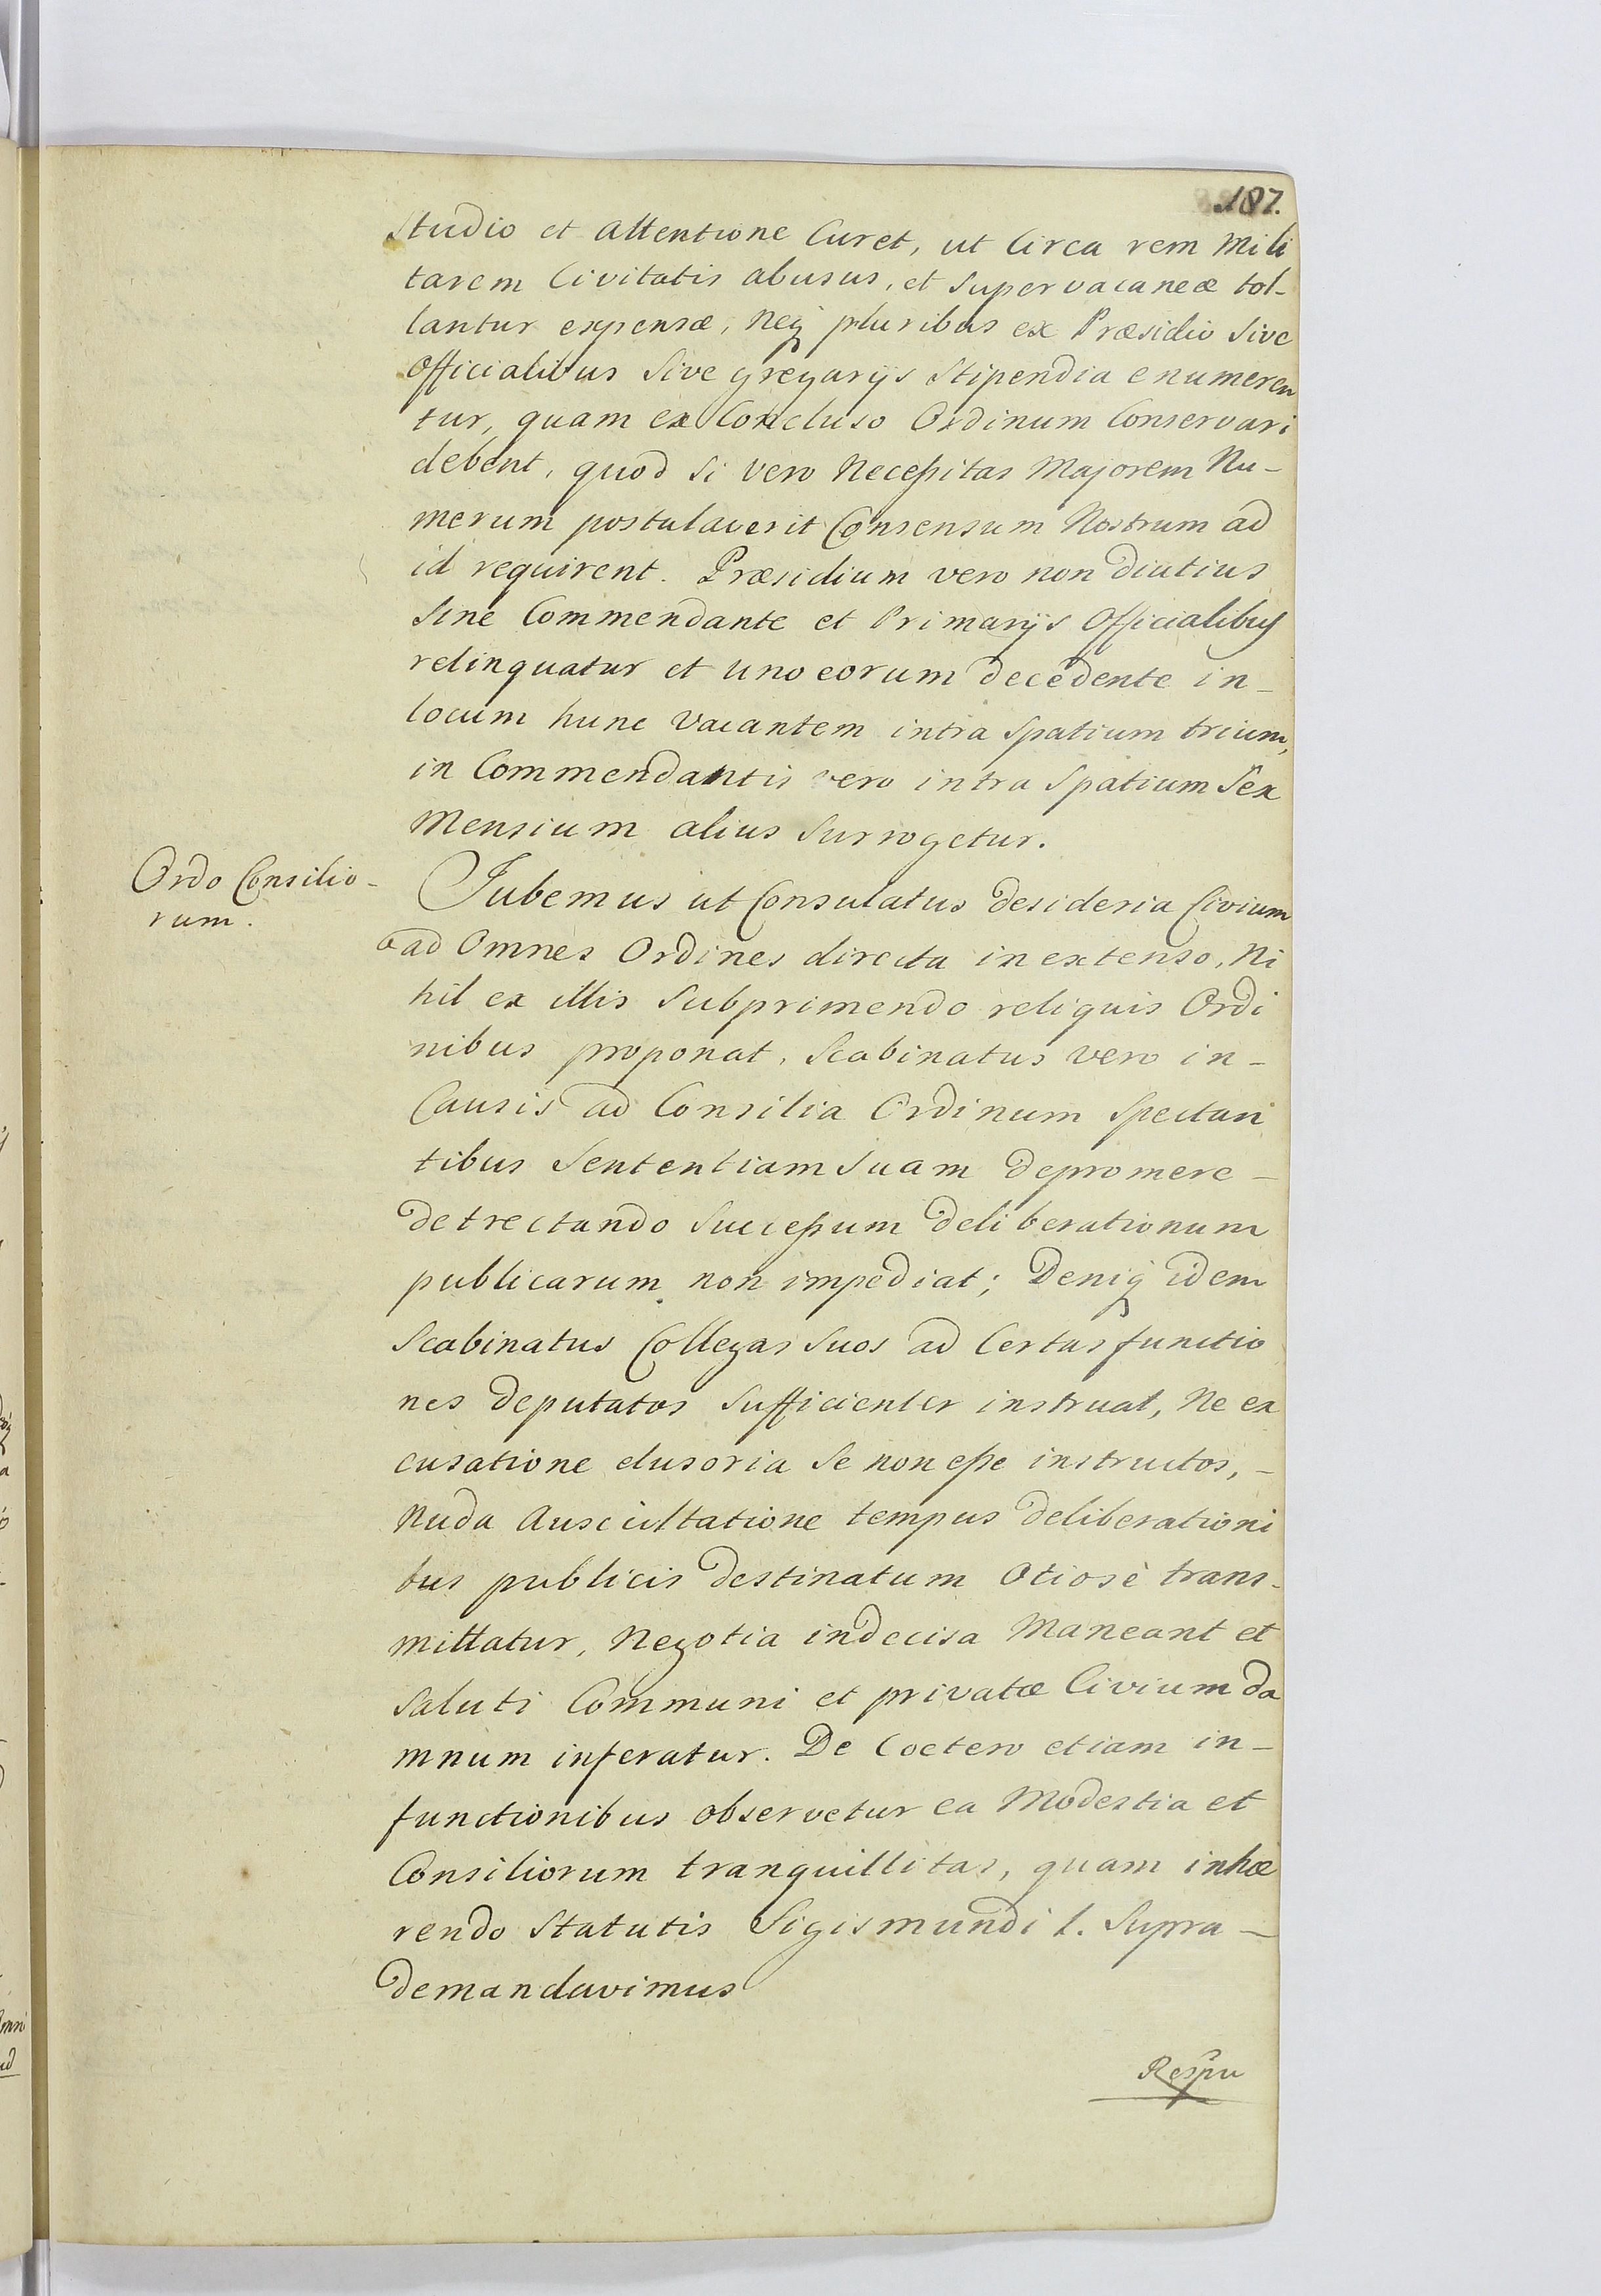 187.
studio et attentione Curet, ut Circa rem Mili
tarem Civitatis abusus, et supervacaneæ tol-
lantur expensæ, neq pluribus ex Præsidio sive
Officialibus sive gregarijs stipendia enumeren
tur, quam ex Concluso Ordinum Conservari
debent, quod si vero Necessitas Majorem Nu-
merum postulaverit Consensum Nostrum ad
id requirent. Præsidium vero non diutius
sine Commendante et Primarijs Officialibus
relinquatur et uno eorum decedente in-
locum hunc Vacantem intra spatium trium,
in Commendantis vero intra spatium Sex
Mensium alius surrogetur.
Ordo Consilio-
rum.
Jubemus ut Consulatus desideria Civium
ad Omnes Ordines directa in extenso, Ni
hil ex illis subprimendo reliquis Ordi
nibus proponat, Scabinatus vero in-
Causis ad Consilia Ordinum Spectan
tibus Sententiam suam depromere-
detrectando successum deliberationum
publicarum non impediat; Deniq idem
Scabinatus Collegas suos ad Certas functio
nes deputatos sufficienter instruat, Ne ex
cusatione elusoria se non esse instructos,-
Nuda Auscultatione tempus deliberationi
bus publicis destinatum Otiosè trans-
mittatur, Negotia indecisa Maneant et
saluti Communi et privatæ Civium da
mnum inferatur. De Coetero etiam in-
functionibus observetur ea Modestia et
Consiliorum tranquillitas, quam inhæ
rendo Statutis Sigismundi 1. Supra-
demandavimus
Respu